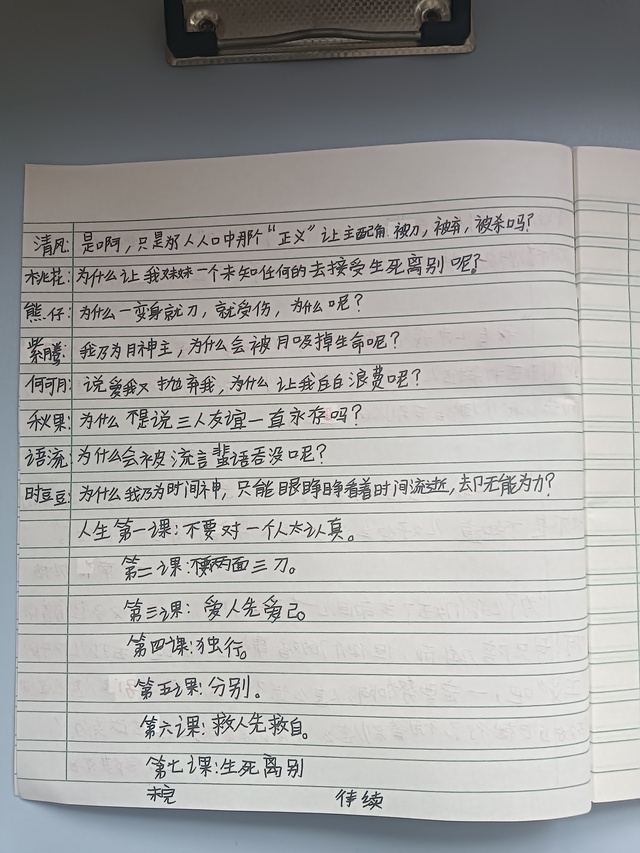 清风: 是啊，只是那人人口中那个“正义”让主配角被刀，被弃，被杀吗？
桃花: 为什么让我妹妹一个未知任何的去接受生死离别呢？
熊仔: 为什么一变身就刀，就受伤，为什么呢？
紫腾: 我乃为月神主，为什么会被月吸掉生命呢？
何可月: 说爱我又抛弃我，为什么让我白白浪费呢？
秋果: 为什么不是说三人友谊一直永存吗？
语流: 为什么会被流言蜚语吞没呢？
时豆豆: 为什么我乃为时间神，只能眼睁睁看着时间流逝，却无能为力？
人生第一课：不要对一个人太认真。
第二课：不要两面三刀。
第三课：爱人先爱己。
第四课：独行。
第五课：分别。
第六课：救人先救自。
第七课：生死离别
未完 待续